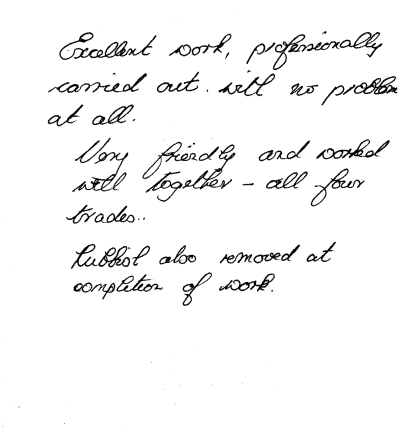 Excellent work, professionally
carried out. with no problem
at all.
Very friendly and worked
well together - all four
trades..
Rubbish also removed at
completion of work.